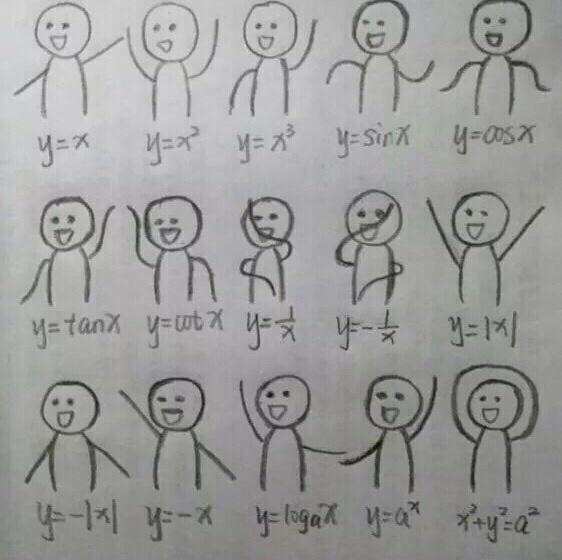 y=x y=x² y=x³ y=sinx y=cosx
y=tanx y=cotx y=1/x y=-1/x y=|x|
y=-|x| y=-x y=logₐx y=aˣ x²+y²=a²